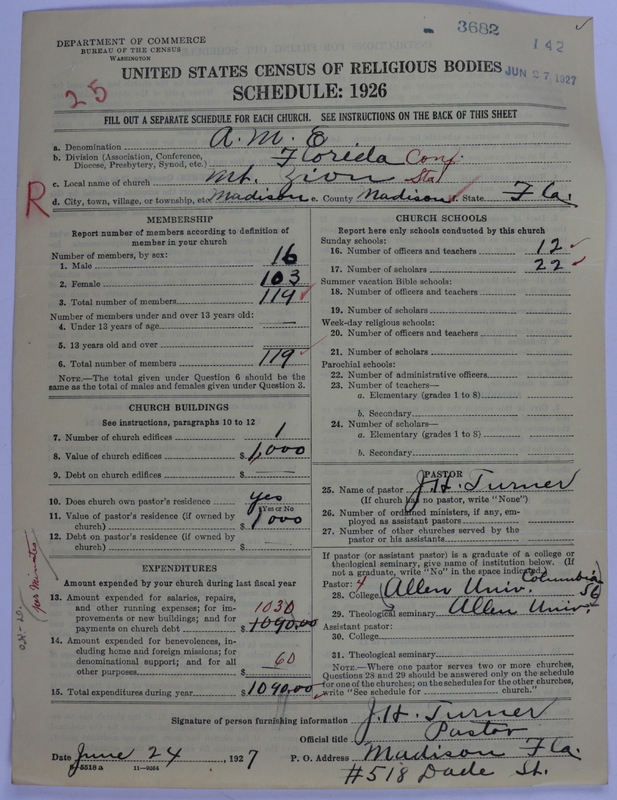 3682
142
DEPARTMENT OF COMMERCE
BUREAU OF THE CENSUS
WASHINGTON
JUN 27 1927
25
UNITED STATES CENSUS OF RELIGIOUS BODIES
SCHEDULE: 1926
FILL OUT A SEPARATE SCHEDULE FOR EACH CHURCH. SEE INSTRUCTIONS ON THE BACK OF THIS SHEET
a. Denomination A. M. E.
b. Division (Association, Conference, Diocese, Presbytery, Synod, etc.) Florida Conf.
c. Local name of church Mt. Zion Sta
R
d. City, town, village, or township, etc. Madison e. County Madison f. State Fla.
MEMBERSHIP
Report number of members according to definition of
member in your church
Number of members, by sex:
1. Male 16
2. Female 103
3. Total number of members 119
Number of members under and over 13 years old:
4. Under 13 years of age —
5. 13 years old and over
6. Total number of members 119
NOTE.—The total given under Question 6 should be the
same as the total of males and females given under Question 3.
CHURCH BUILDINGS
See instructions, paragraphs 10 to 12
7. Number of church edifices 1
8. Value of church edifices $ 1,000
9. Debt on church edifices $ —
10. Does church own pastor's residence yes
(Yes or No)
11. Value of pastor's residence (if owned by
church) $ 1000
12. Debt on pastor's residence (if owned by
church) $
EXPENDITURES
Amount expended by your church during last fiscal year
13. Amount expended for salaries, repairs,
and other running expenses; for im-
provements or new buildings; and for
payments on church debt $ 1030 1090.00
14. Amount expended for benevolences, in-
cluding home and foreign missions; for
denominational support; and for all
other purposes $ 60
15. Total expenditures during year $ 1090.00
per Minutes
CHURCH SCHOOLS
Report here only schools conducted by this church
Sunday schools:
16. Number of officers and teachers 12
17. Number of scholars 22
Summer vacation Bible schools:
18. Number of officers and teachers
19. Number of scholars
Week-day religious schools:
20. Number of officers and teachers
21. Number of scholars
Parochial schools:
22. Number of administrative officers
23. Number of teachers—
a. Elementary (grades 1 to 8)
b. Secondary
24. Number of scholars—
a. Elementary (grades 1 to 8)
b. Secondary
PASTOR
25. Name of pastor J. H. Turner
(If church has no pastor, write "None")
26. Number of ordained ministers, if any, em-
ployed as assistant pastors
27. Number of other churches served by the
pastor or his assistants
If pastor (or assistant pastor) is a graduate of a college or
theological seminary, give name of institution below. (If
not a graduate, write "No" in the space indicated.)
Pastor: 4
28. College Allen Univ. Columbia
29. Theological seminary Allen Univ.
Assistant pastor:
30. College
31. Theological seminary
NOTE.—Where one pastor serves two or more churches,
Questions 28 and 29 should be answered only on the schedule
for one of the churches; on the schedules for the other churches,
write "See schedule for church."
Signature of person furnishing information J. H. Turner
Official title Pastor
Date June 24, 1927 P. O. Address Madison Fla.
#518 Dade St.
8-5518 a 11-9264